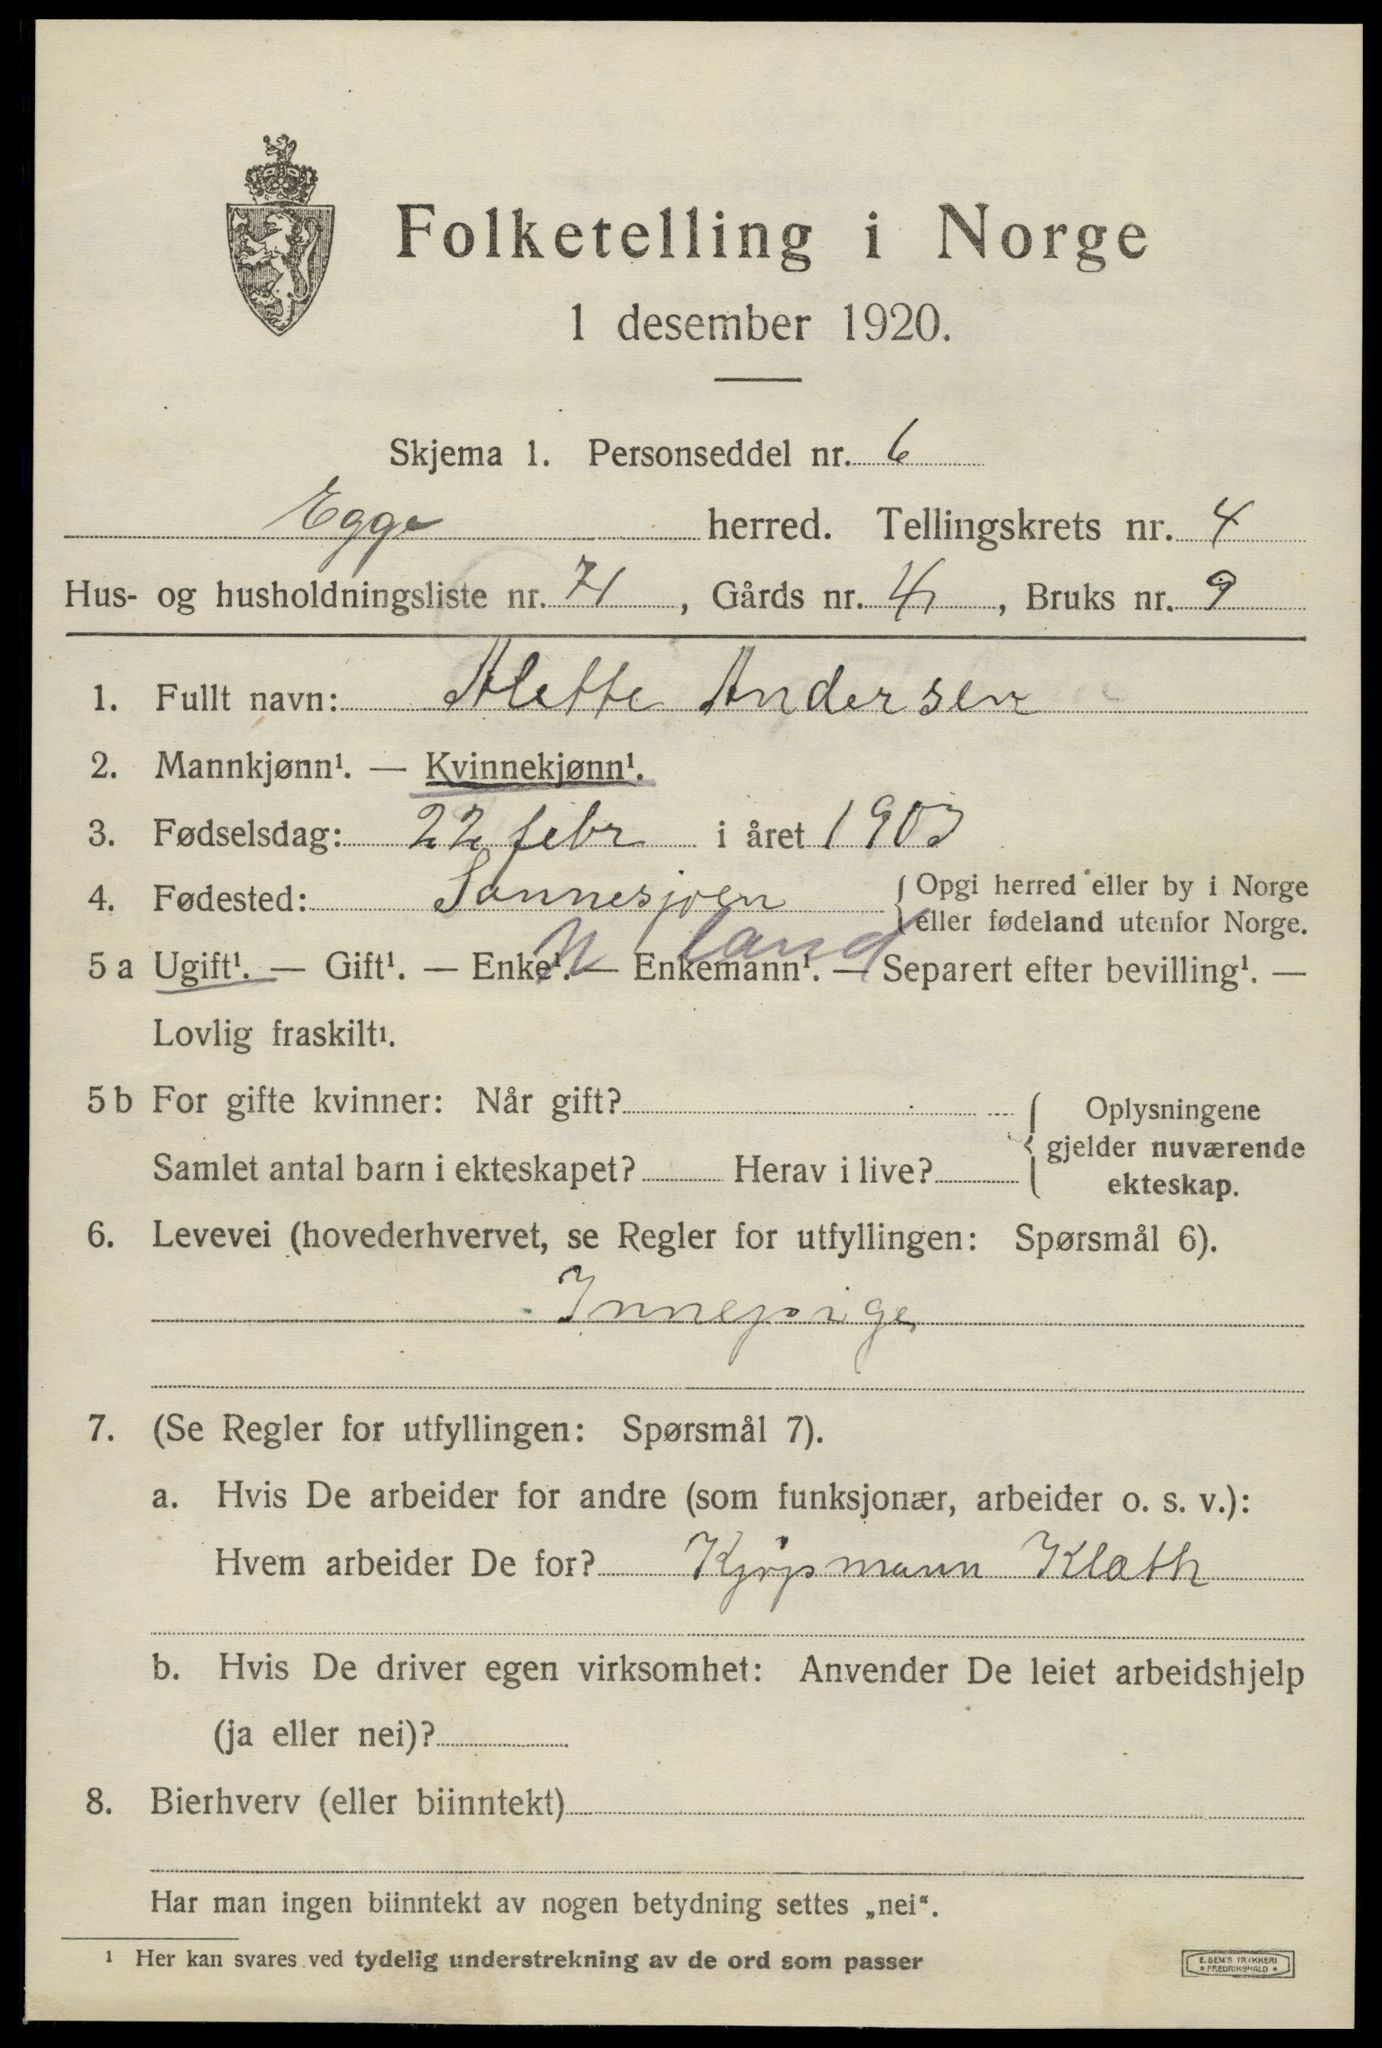 Folketelling i Norge
1 desember 1920.
Skjema 1. Personseddel nr. 6
Egge herred. Tellingskrets nr. 4
Hus- og husholdningsliste nr. 71, Gårds nr. 4, Bruks nr. 9
1. Fullt navn: Alette Andersen
2. Mannkjønn¹. — Kvinnekjønn¹.
3. Fødselsdag: 22 febr i året 1903
4. Fødested: Sannesjoen { Opgi herred eller by i Norge
eller fødeland utenfor Norge.
N land
5 a Ugift¹. — Gift¹. — Enke¹. — Enkemann¹. — Separert efter bevilling¹. —
Lovlig fraskilt¹.
5 b For gifte kvinner: Når gift? { Oplysningene
gjelder nuværende
Samlet antal barn i ekteskapet? Herav i live? ekteskap.
6. Levevei (hovederhvervet, se Regler for utfyllingen: Spørsmål 6).
Innejpige
7. (Se Regler for utfyllingen: Spørsmål 7).
a. Hvis De arbeider for andre (som funksjonær, arbeider o. s. v.):
Hvem arbeider De for? Kjøpmann Klæth
b. Hvis De driver egen virksomhet: Anvender De leiet arbeidshjelp
(ja eller nei)?
8. Bierhverv (eller biinntekt)
Har man ingen biinntekt av nogen betydning settes „nei“.
¹ Her kan svares ved tydelig understrekning av de ord som passer
E. SEM'S TRYKKERI
FREDRIKSHALD